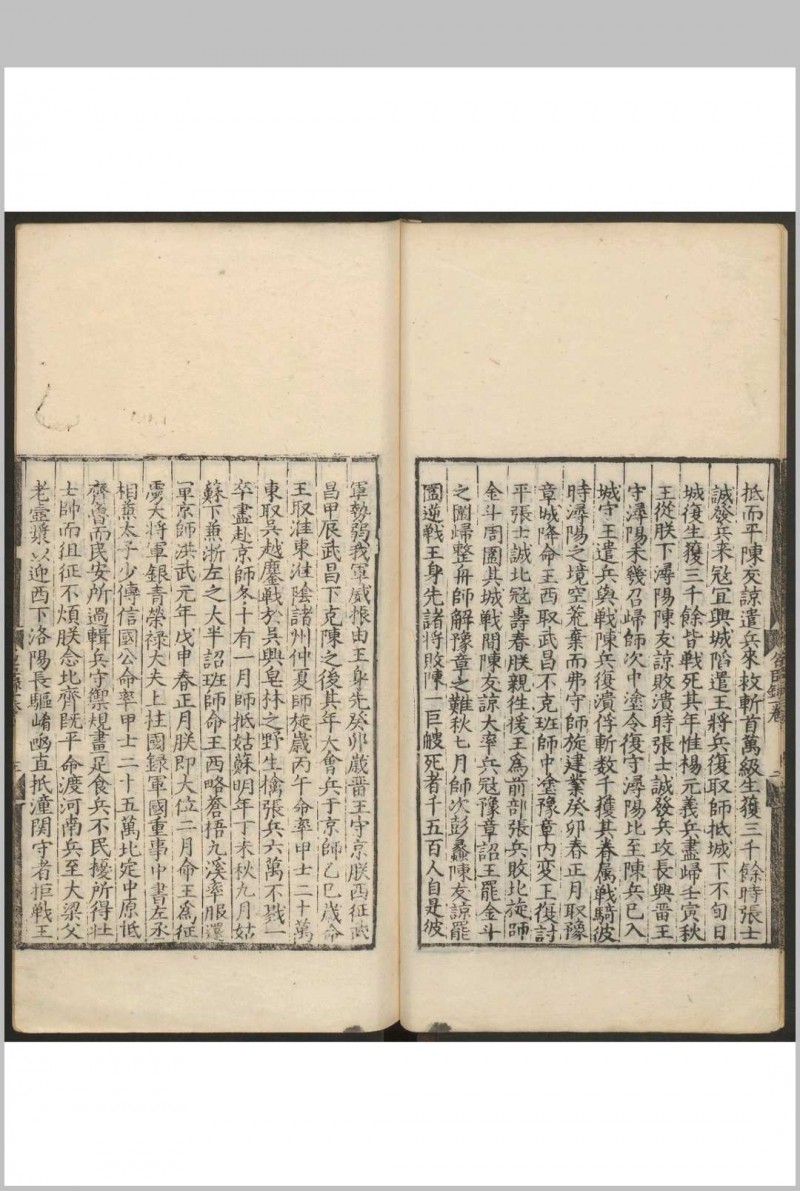 抵而平陳友諒遣兵來救斬首萬級生獲三千餘時張士
誠發兵來冦宜興城陷遣王將兵復取師抵城下不旬日
城復生獲三千餘皆戰死其年惟楊元義兵盡歸壬寅秋
王從朕下潯陽陳友諒敗潰時張士誠發兵攻長興晋王
守潯陽未幾召歸師次中塗令復守潯陽比至陳兵已入
城守王遣兵與戰陳兵復潰俘斬数千獲其眷属戰騎彼
時潯陽之境空荒棄而弗守師旋建業癸卯春正月取豫
章城降命王西取武昌不克班師中塗豫章内変王復討
平張士誠北冦壽春朕親徃後王爲前部張兵敗北旋師
金斗周圍其城戰間陳友諒大率兵冦豫章詔王罷金斗
之圍歸整舟師解豫章之難秋七月師次彭蠡陳友諒罷
圍逆戰王身先諸将敗陳一巨艘死者千五百人自是彼
軍勢弱我軍威振由王身先癸卯歳晋王守京朕西征武
昌甲辰武昌下克陳之後其年大會兵于京師乙巳歳命
王取淮東淮陰諸州仲夏師旋歳丙午命率甲士二十萬
東取吳越鏖戰於吳興皂林之野生擒張兵六萬不戮一
卒盡赴京師冬十有一月師抵姑蘇明年丁未秋九月姑
蘇下兼浙左之大半詔班師命王西略蒼梧九溪率服還
軍京師洪武元年戊申春正月朕即大位二月命王爲征
虜大將軍銀青榮禄大夫上柱國録軍國重事中書左丞
相兼太子少傅信國公命率甲士二十五萬北定中原抵
齊魯而民安所過輯兵守禦規畫足食兵不民擾所得壮
士帥而徂征不煩朕念北齊旣平命渡河南兵至大梁父
老壷漿以迎西下洛陽長驅崤凾直抵潼関守者拒戰王